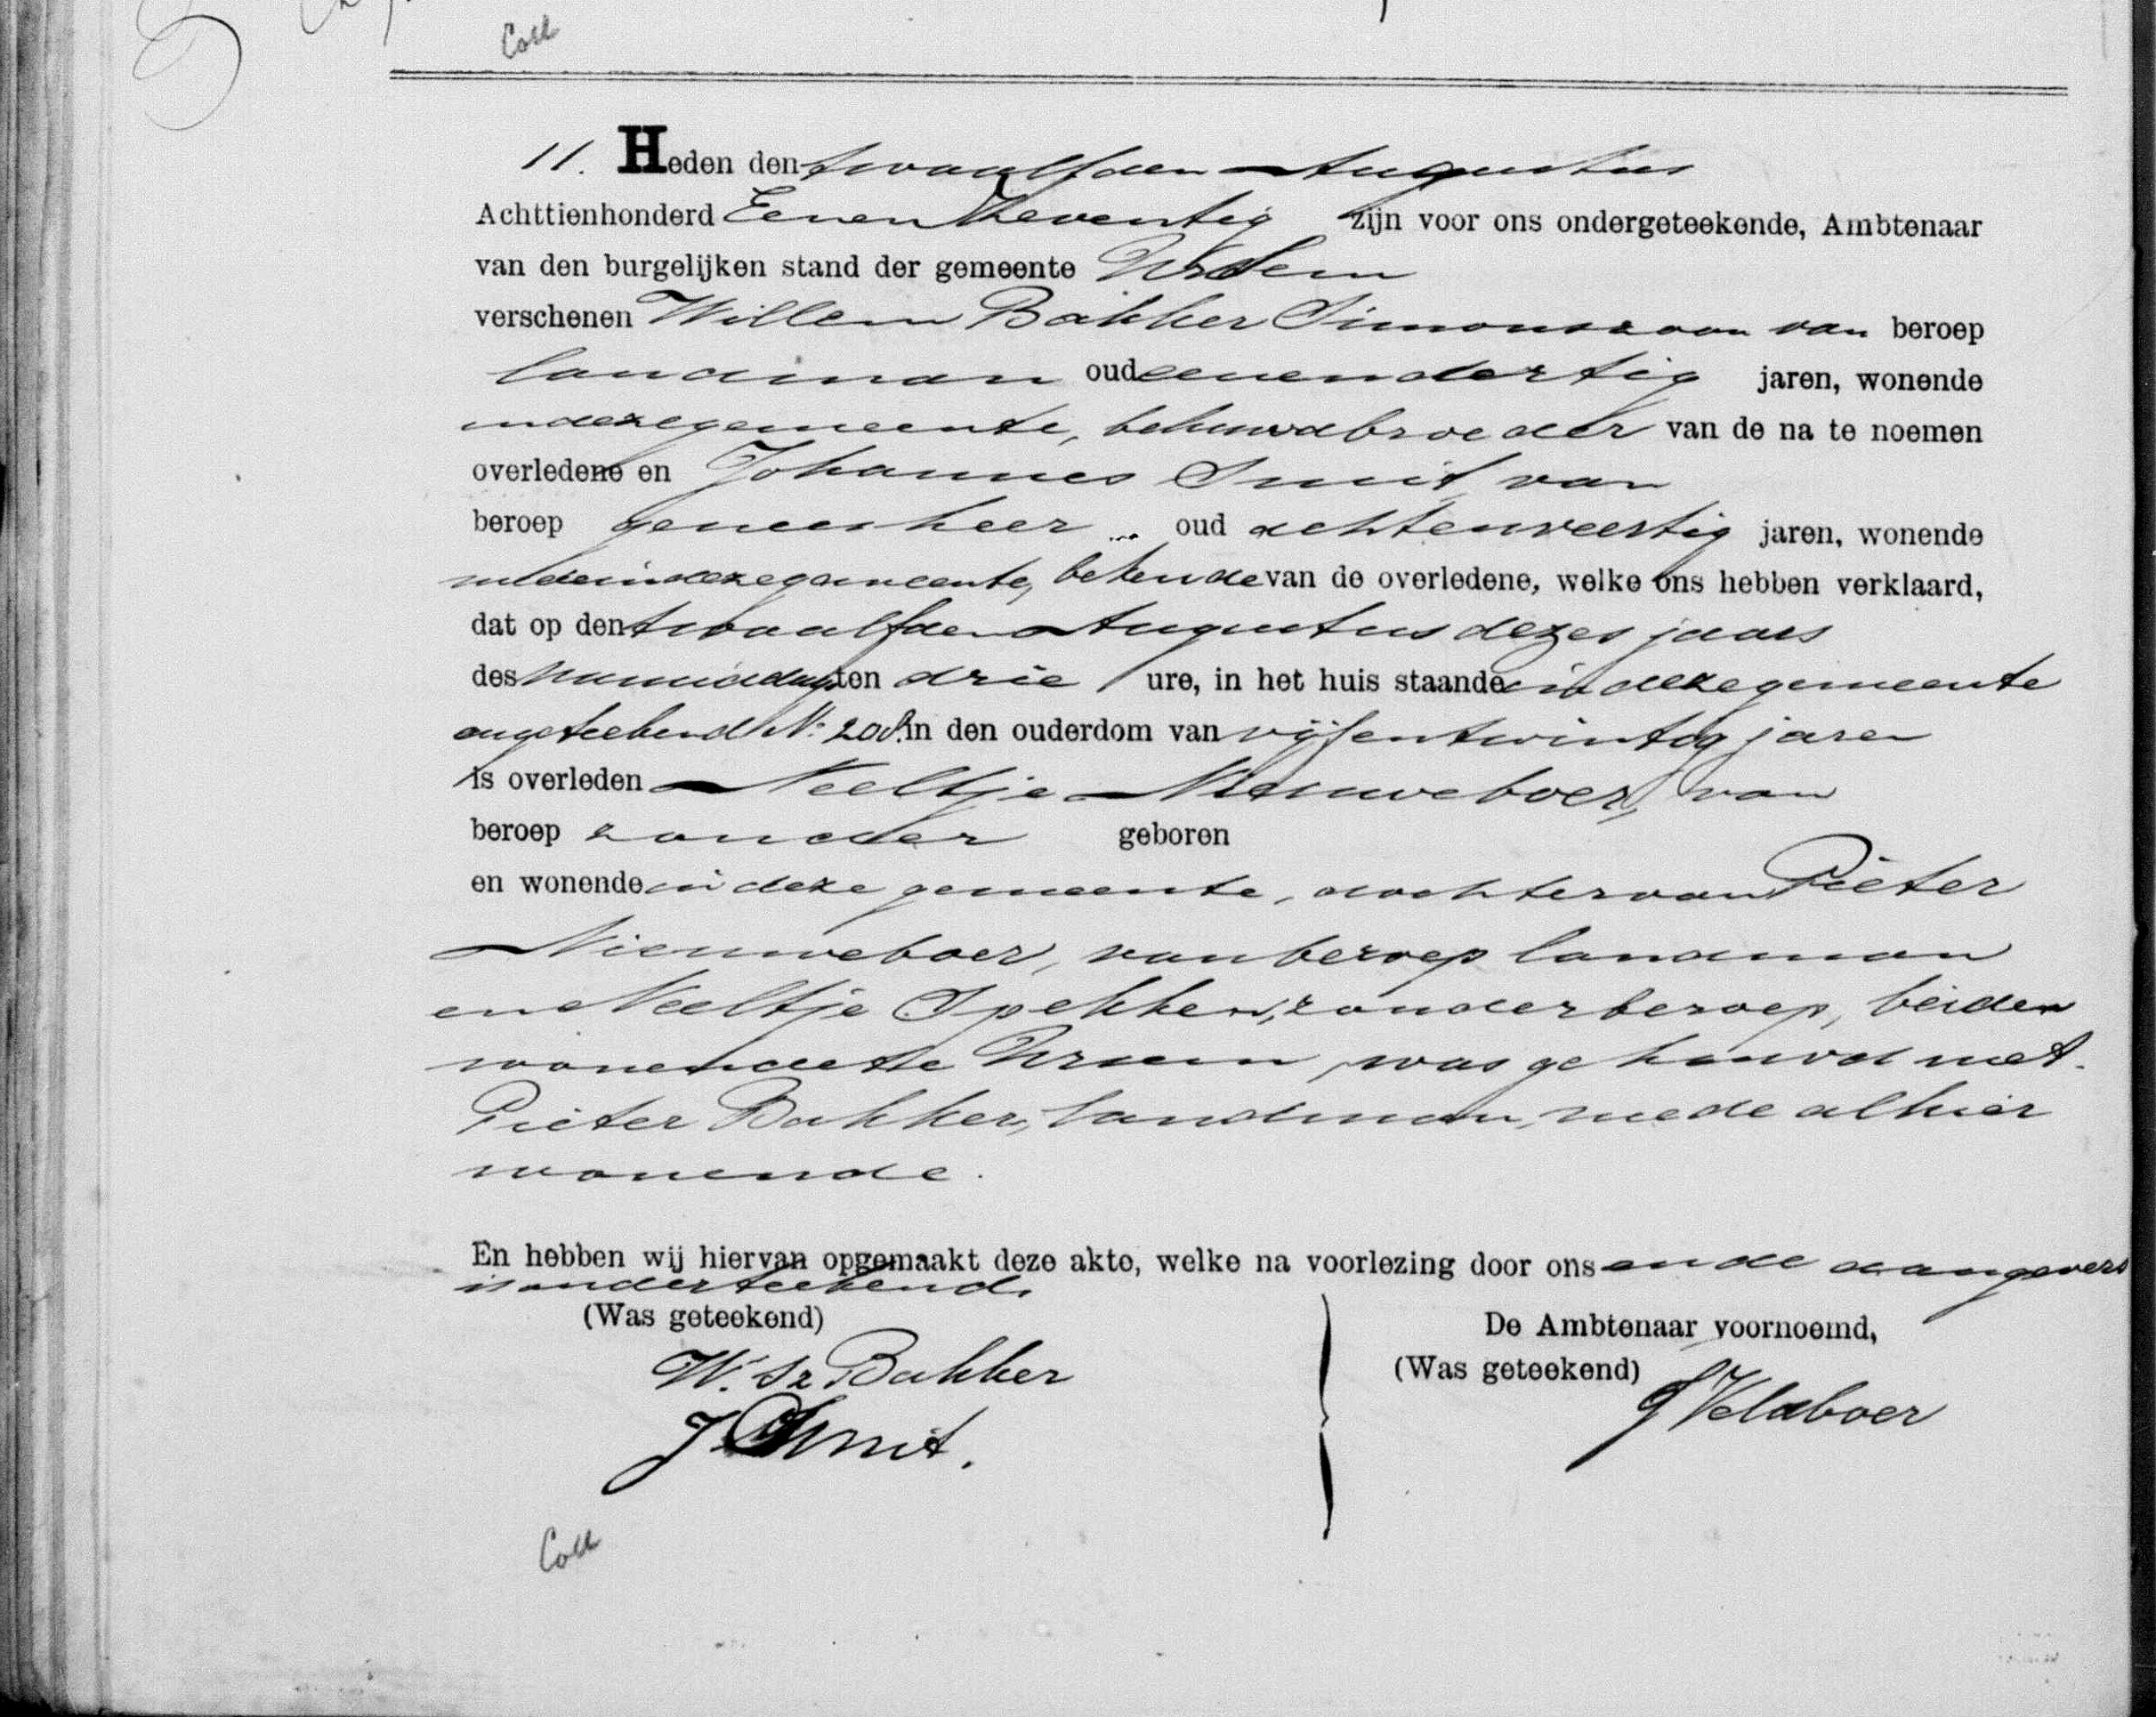 Coll
11. Heden den twaalfden Augustus
Achttienhonderd Eenenzeventig zijn voor ons ondergeteekende, Ambtenaar
van den burgelijken stand der gemeente Ursem
verschenen Willem Bakker Simonszoon van beroep
landman oud eenendertig jaren, wonende
indezegemeente, behuwdbroeder van de na te noemen
overledene en Johannes Smit van
beroep geneesheer oud achtenveertig jaren, wonende
medeindezegemeente, bekende van de overledene, welke ons hebben verklaard,
dat op den twaalfden Augustus dezes jaars
des namiddags ten drie ure, in het huis staande in dezegemeente
angeteekend No 208. in den ouderdom van vijfentwintig jaren
is overleden Neeltje Nieuweboer, van
beroep zonder geboren
en wonende in deze gemeente, dochter van Pieter
Nieuweboer, van beroep landman
en Neeltje Spekken, zonder beroep, beiden
wonende te Ursem, was gehuwd met
Pieter Bakker, landman, mede alhier
wonende.
En hebben wij hiervan opgemaakt deze akte, welke na voorlezing door ons en de aangevers
is onderteekend.
(Was geteekend)
W. Sz Bakker
J Smit.
De Ambtenaar voornoemd,
(Was geteekend)
G Veldboer
Coll